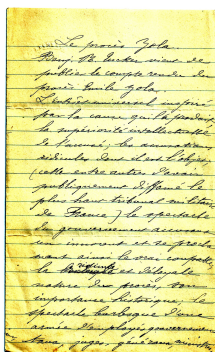 Le procès Zola.
Benj. R. Tucker vient de
publier le compte rendu du
procès Emile Zola.
L'intérêt universel inspiré
par la cause qui l'a produit,
la supériorité intellectuelle
de l'accusé; les accusations
ridicules dont il est l'objet,
(celle entre autres d'avoir
publiquement diffamé le
plus haut tribunal militaire
de France) le spectacle
du gouvernement accusant
un innocent et se procla
mant ainsi le vrai coupable,
la évidente et déloyale
nature du procès, son
importance historique, le
spectacle burlesque d'une
armée d'employés gouvernemen
taux, juges, généraux, ministres